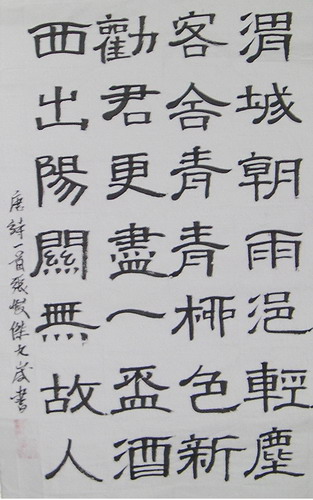 渭城朝雨浥輕塵
客舍青青柳色新
勸君更盡一盃酒
西出陽關無故人
唐詩一首張傑書